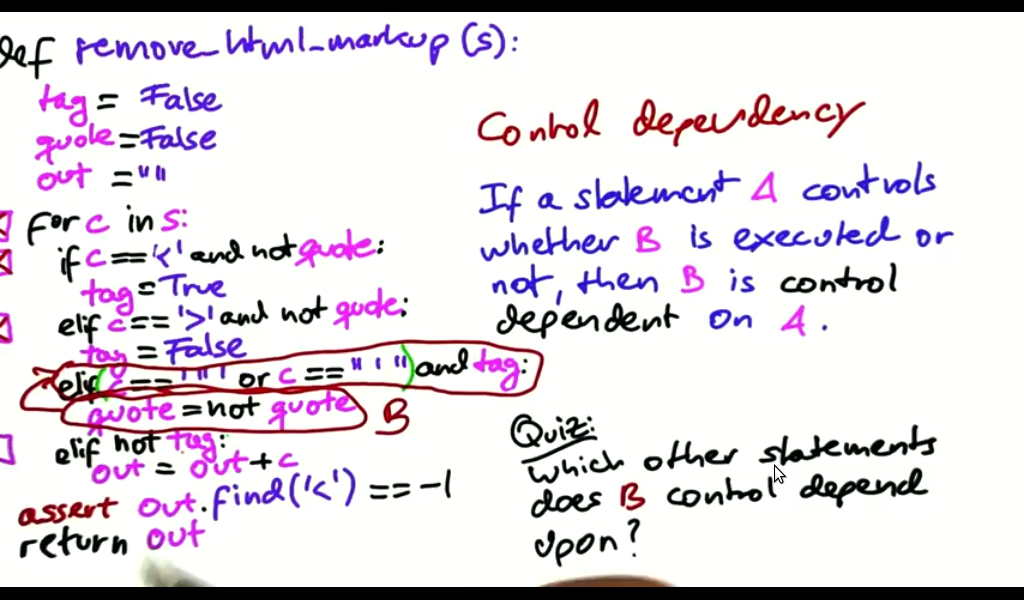 def remove_html_markup (s):
tag = False
quote = False
out = ""
for c in s:
if c == '<' and not quote:
tag = True
elif c == '>' and not quote:
tag = False
elif (c == '"' or c == "'") and tag:
quote = not quote
B
elif not tag:
out = out + c
assert out.find('<') == -1
return out
Control dependency
If a statement A controls
whether B is executed or
not, then B is control
dependent on A.
Quiz:
which other statements
does B control depend
upon?